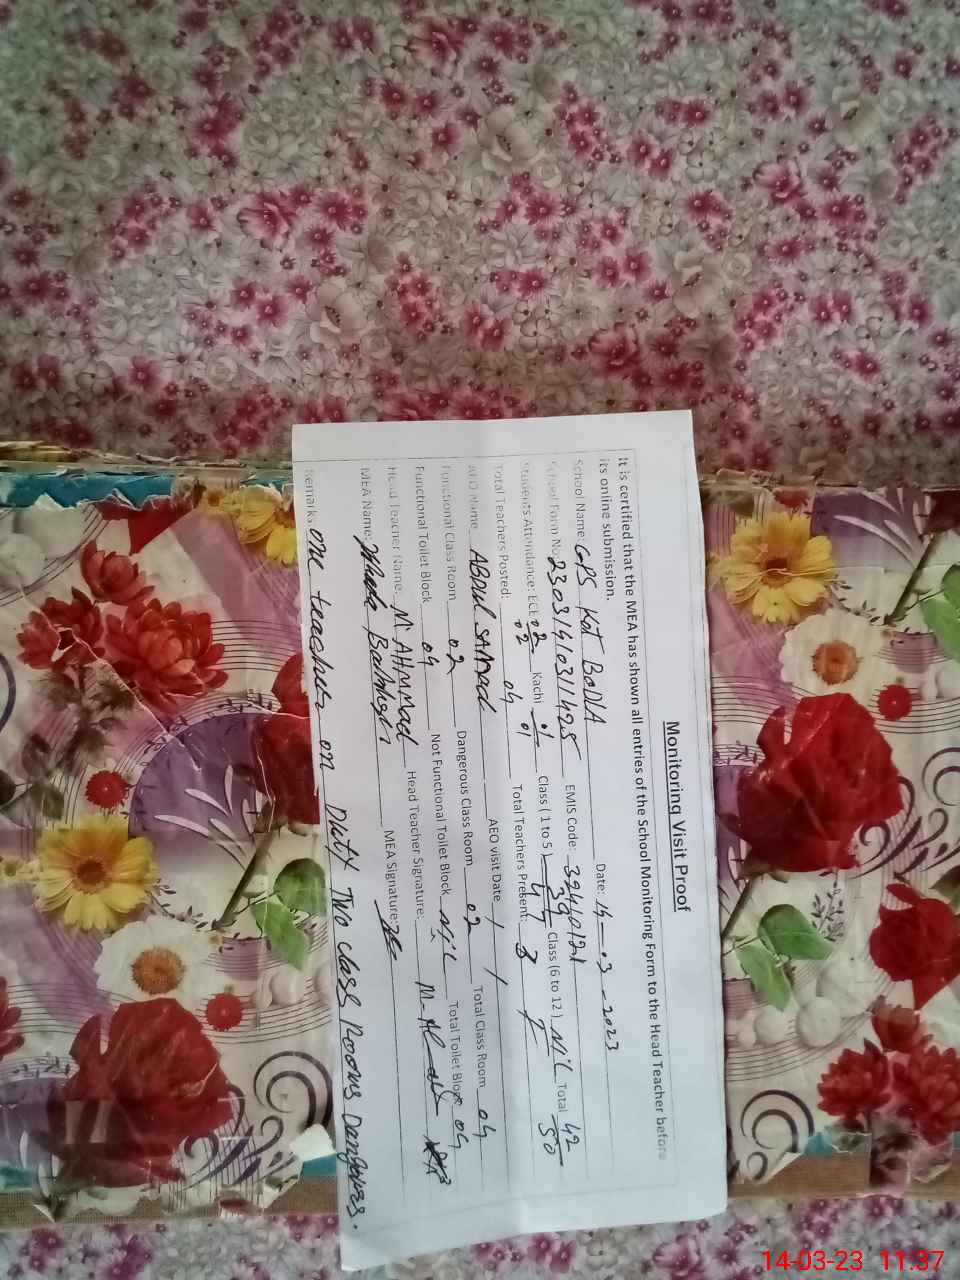 Monitoring Visit Proof
It is certified that the MEA has shown all entries of the School Monitoring Form to the Head Teacher before
its online submission.
School Name: GPS Kot BODLA Date: 14-03-2023
School Form No. 23031410311425 EMIS Code:
Students Attendance: ECE 02/02 Kachi 01/01 Class (1 to 5) 47 Class (6 to 12) NiL Total 42/50
Total Teachers Posted: 04 Total Teachers Present: 3
AEO Name ABDUL SAMAD AEO visit Date / /
Functional Class Room 02 Dangerous Class Room 02 Total Class Room 04
Functional Toilet Block 04 Not Functional Toilet Block NiL Total Toilet Block 04
Head Teacher Name: M AHMAD Head Teacher Signature:
MEA Name: MEA Signature:
Remarks: one teacher on DUTY Two class Rooms Dangerous.
14-03-23 11:37